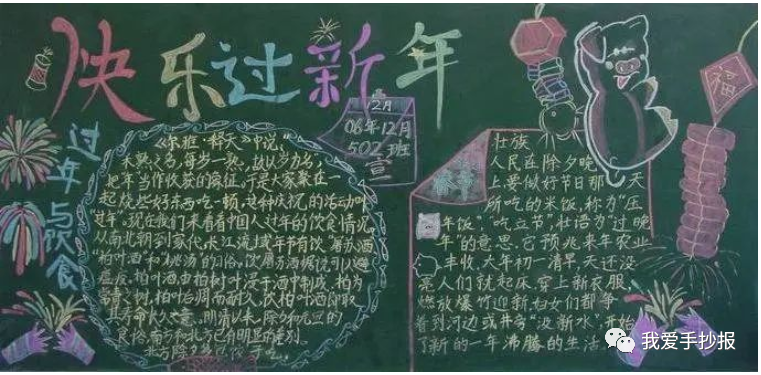 快乐过新年
过年与饮食
12月
06年12月
502班
宣
福
《尔雅·释天》中说,"
禾熟之名,每岁一熟,故以岁为名,
把年当作收获的象征,于是大家聚在一
起烧些好东西吃一顿,某种庆祝的活动叫
过年".现在我们来看看中国人过年的饮食情况。
从南北朝到宋代,长江流域年节有饮"屠苏酒
柏叶酒"和"桃汤"的习俗,饮屠苏酒据说可以避
瘟疫。柏叶酒,由柏树叶浸于酒中制成,柏为
其寿命长久之意。明清以来,除夕和元旦的
食俗,南方和北方已有明显的差别。
春节
壮族
人民在除夕晚
上要做好节日那一天
所吃的米饭,称为"压
年饭","吃立节",壮语为"过晚
年"的意思,它预兆来年农业
丰收。大年初一清早,天还没
亮人们就起床,穿上新衣服,
燃放爆竹迎新,妇女们都争
着到河边或井旁"汲新水",开始
了新的一年沸腾的生活。
我爱手抄报